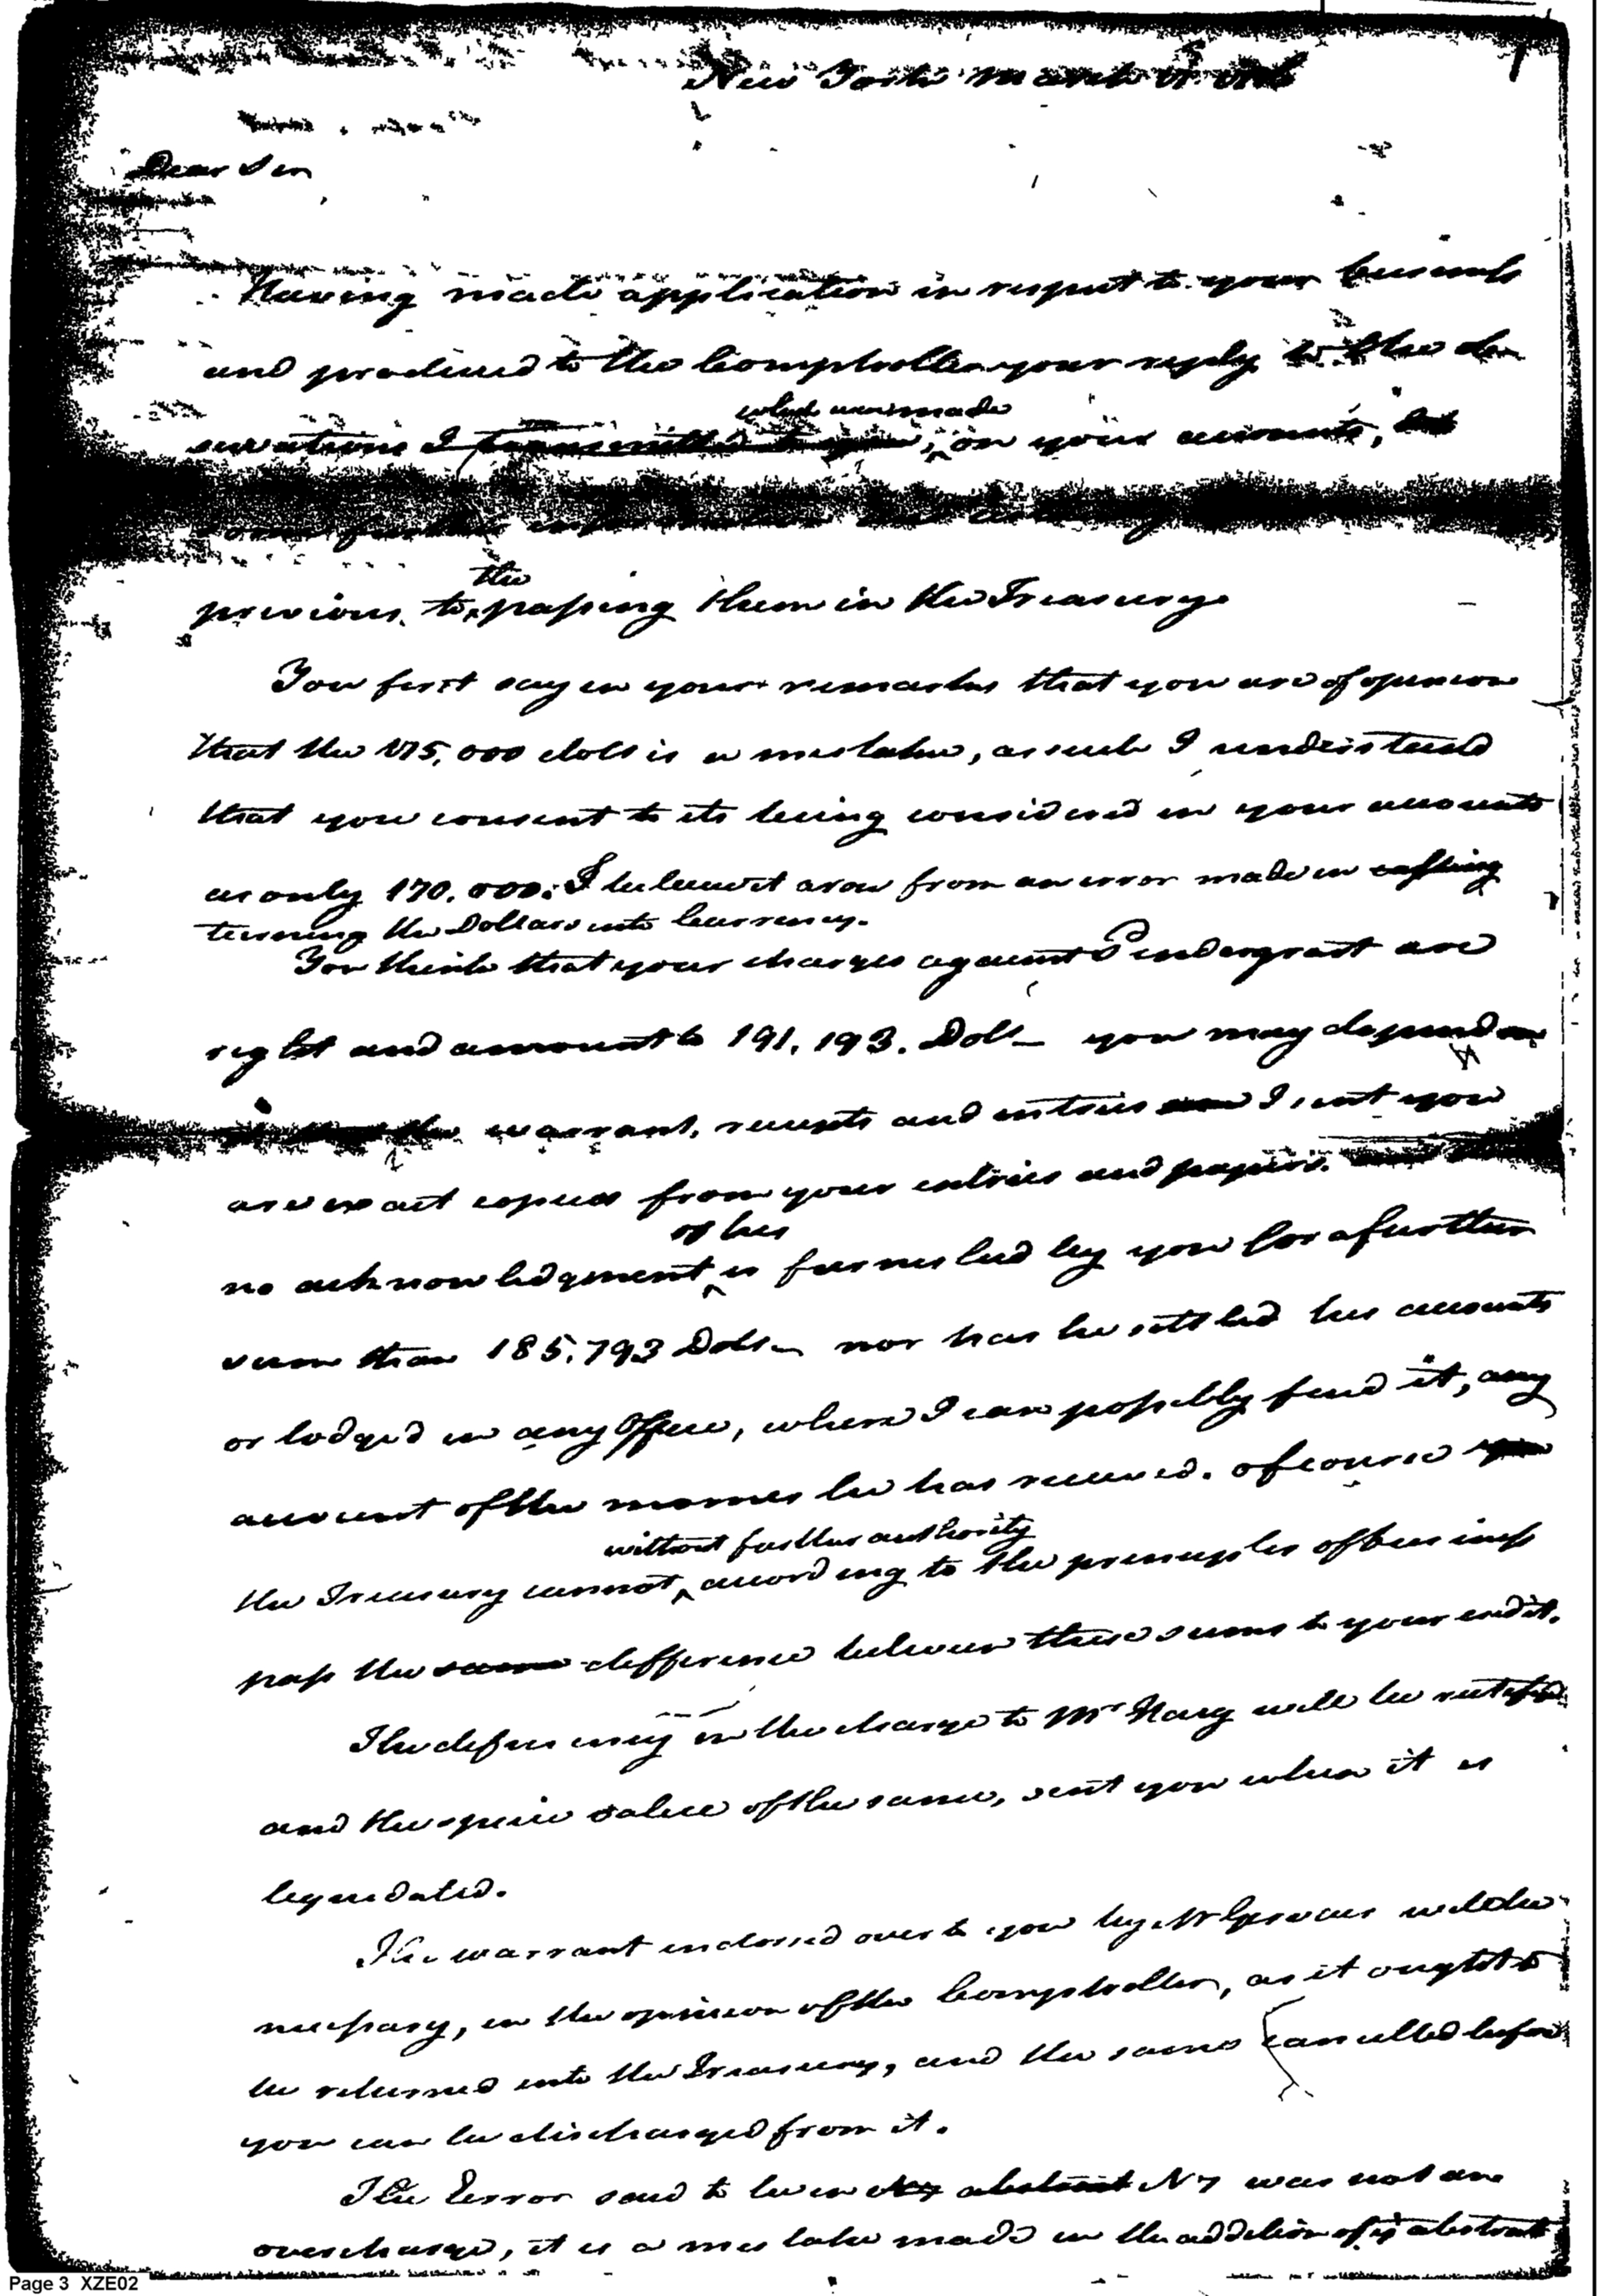 New York March
Dear Sir
Having made application in respect to your business
and produced to the Comptroller your reply to the ob
which were made
servations I transmitted to you, on your accounts,
some further information
the
previous to passing them in the Treasury
You first say in your remarks that you are of opinion
that the 175,000 dolls is a mistake, as such I understand
that you consent to its being considered in your accounts
as only 170.000. I believe it arose from an error made in casting
turning the Dollars into Currency.
You think that your charges against Pendergrast are
right and amount to 191.193. Doll— you may depend on
it that the warrant, receipts and entries I sent you
are exact copies from your entries and papers.
of his
no acknowledgment is furnished by you for a further
sum than 185.793 Dolls— nor has he settled his accounts
or lodged in any Office, where I can possibly find it, any
account of the monies he has received. of course
without further authority
the Treasury cannot, according to the principles of business
pass the same difference between these sums to your credit.
The deficiency in the charge to Mr Nary will be rectified
and the specie value of the same, sent you when it is
liquidated.
The warrant endorsed over to you by Mr will be
necessary, in the opinion of the Comptroller, as it ought to
be returned into the Treasury, and the same cancelled before
you can be discharged from it.
The Error said to be in abstract N 7 was not an
overcharge, it is a mistake made in the addition of abstract
Page 3 XZE02